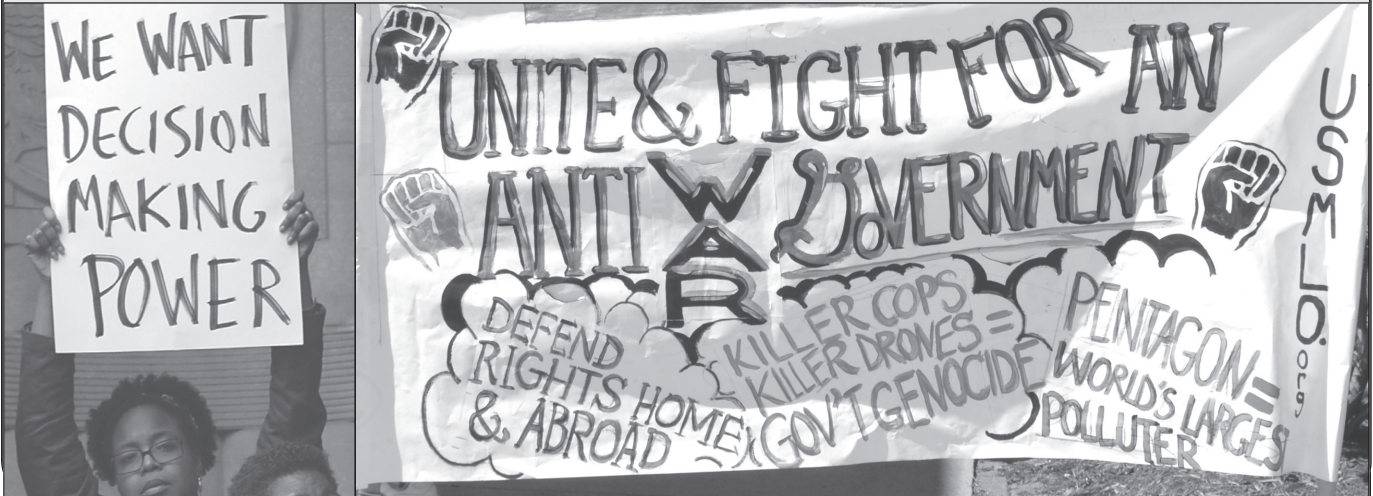 WE WANT
DECISION
MAKING
POWER
UNITE & FIGHT FOR AN
ANTI WAR GOVERNMENT
DEFEND
RIGHTS HOME
& ABROAD
KILLER COPS
KILLER DRONES =
GOV'T GENOCIDE
PENTAGON =
WORLD'S LARGES
POLLUTER
USMLO.org